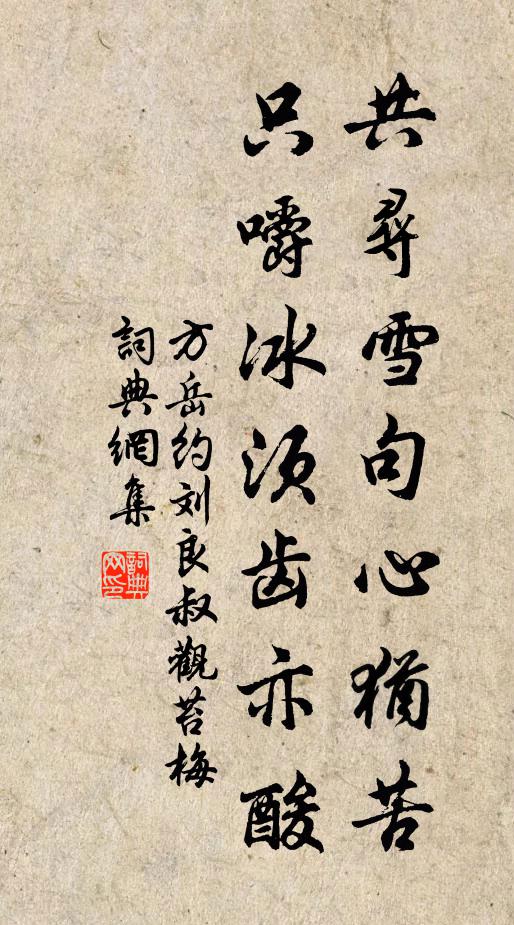 共尋雪句心猶苦
只嚼冰須齿亦酸
方岳约刘良叔觀苔梅
詞典網集
詞典网印